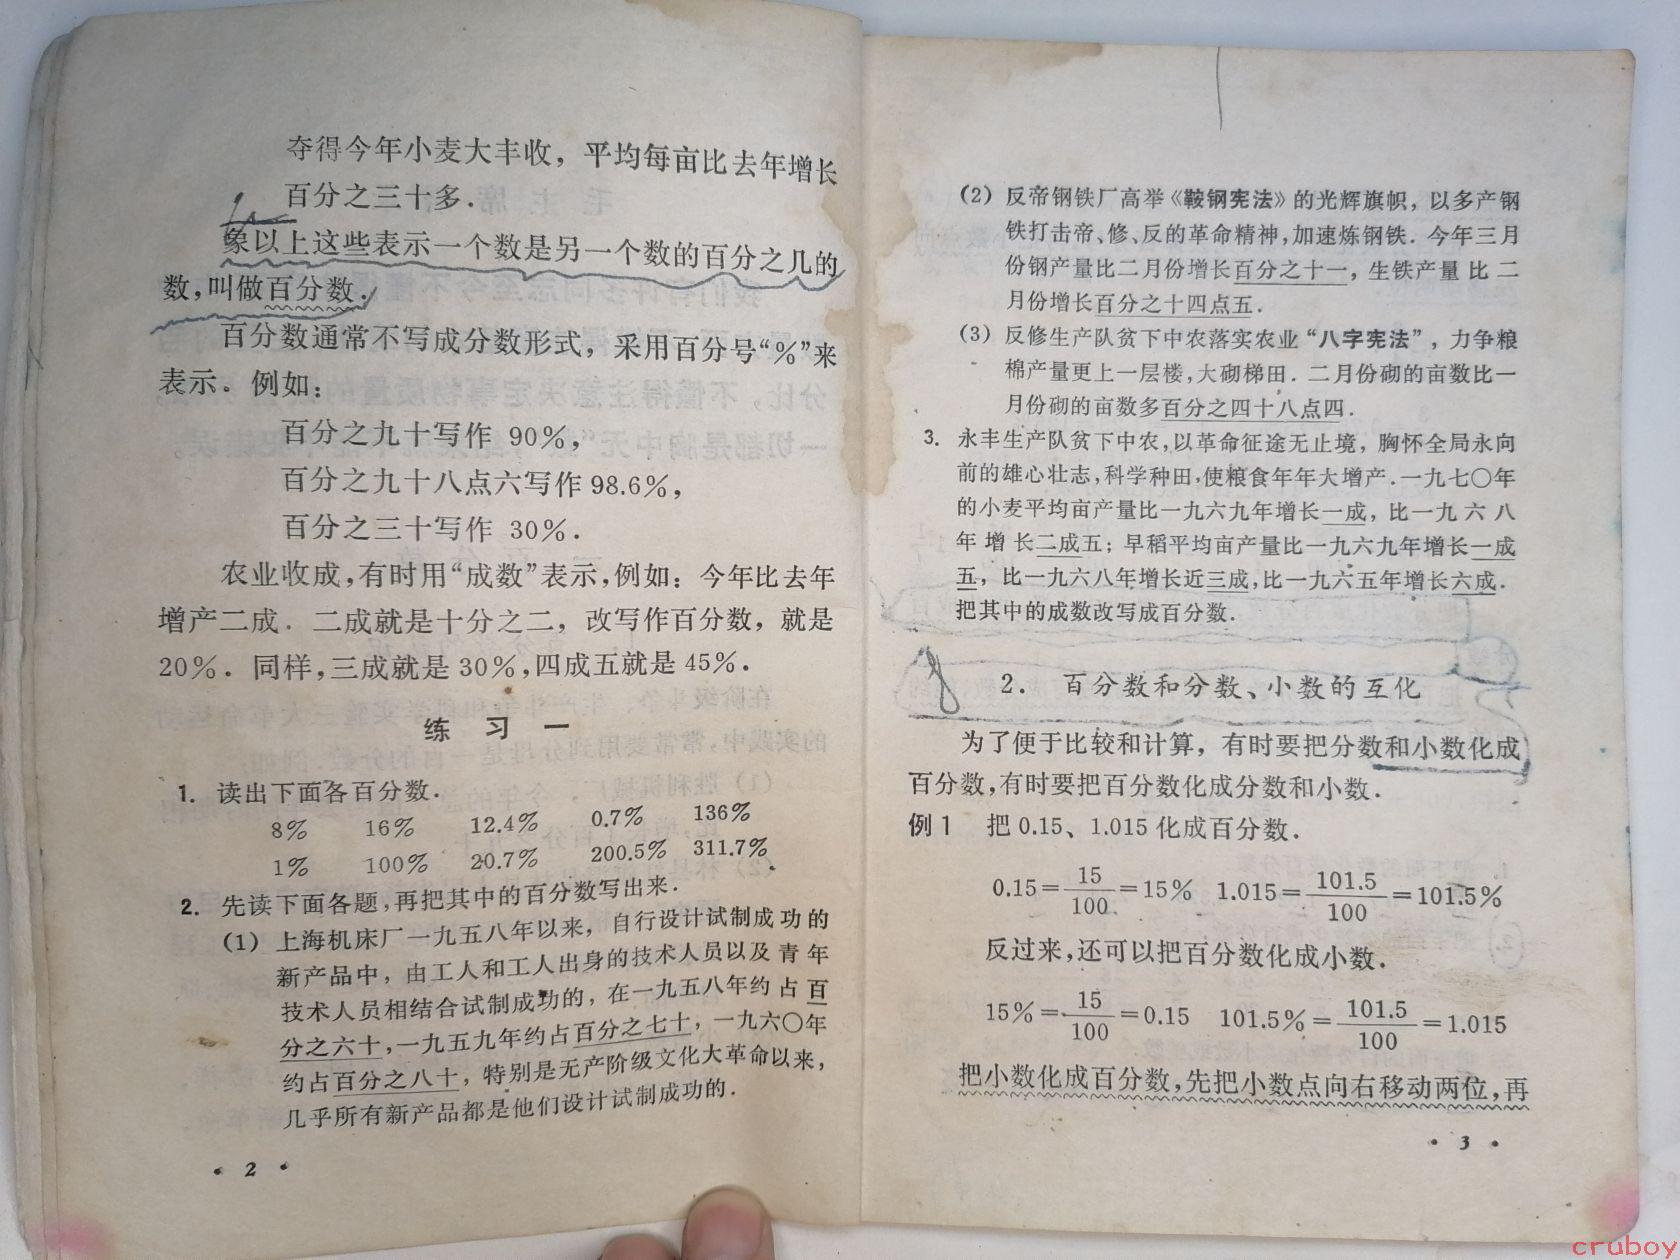 夺得今年小麦大丰收，平均每亩比去年增长
百分之三十多．
象以上这些表示一个数是另一个数的百分之几的
数，叫做百分数．
百分数通常不写成分数形式，采用百分号“％”来
表示。例如：
百分之九十写作 90％，
百分之九十八点六写作 98.6％，
百分之三十写作 30％．
农业收成，有时用“成数”表示，例如：今年比去年
增产二成．二成就是十分之二，改写作百分数，就是
20％．同样，三成就是 30％，四成五就是 45％．
练 习 一
1. 读出下面各百分数．
8％ 16％ 12.4％ 0.7％ 136％
1％ 100％ 20.7％ 200.5％ 311.7％
2. 先读下面各题，再把其中的百分数写出来．
（1）上海机床厂一九五八年以来，自行设计试制成功的
新产品中，由工人和工人出身的技术人员以及青年
技术人员相结合试制成功的，在一九五八年约占百
分之六十，一九五九年约占百分之七十，一九六〇年
约占百分之八十，特别是无产阶级文化大革命以来，
几乎所有新产品都是他们设计试制成功的．
· 2 ·
（2）反帝钢铁厂高举《鞍钢宪法》的光辉旗帜，以多产钢
铁打击帝、修、反的革命精神，加速炼钢铁．今年三月
份钢产量比二月份增长百分之十一，生铁产量比二
月份增长百分之十四点五．
（3）反修生产队贫下中农落实农业“八字宪法”，力争粮
棉产量更上一层楼，大砌梯田．二月份砌的亩数比一
月份砌的亩数多百分之四十八点四．
3. 永丰生产队贫下中农，以革命征途无止境，胸怀全局永向
前的雄心壮志，科学种田，使粮食年年大增产．一九七〇年
的小麦平均亩产量比一九六九年增长一成，比一九六八
年增长二成五；早稻平均亩产量比一九六九年增长一成
五，比一九六八年增长近三成，比一九六五年增长六成．
把其中的成数改写成百分数．
2. 百分数和分数、小数的互化
为了便于比较和计算，有时要把分数和小数化成
百分数，有时要把百分数化成分数和小数．
例1 把 0.15、1.015 化成百分数．
0.15＝15/100＝15％ 1.015＝101.5/100＝101.5％
反过来，还可以把百分数化成小数．
15％＝15/100＝0.15 101.5％＝101.5/100＝1.015
把小数化成百分数，先把小数点向右移动两位，再
· 3 ·
cruboy